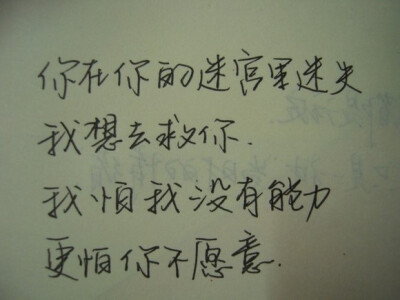 你在你的迷宫里迷失
我想去救你.
我怕我没有能力
更怕你不愿意.